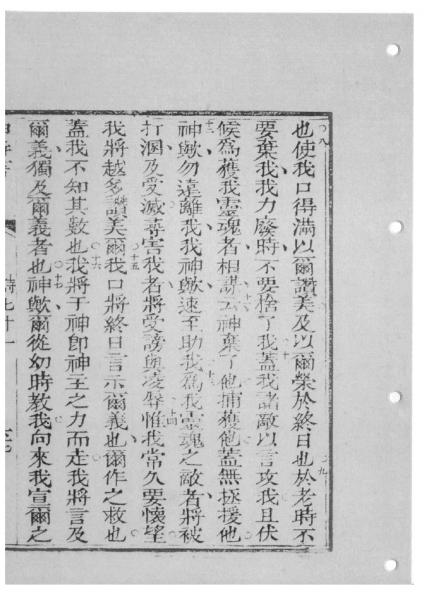 ○八
也使我口得滿以爾讚美及以爾榮於終日也於老時不
九
要棄我我力廢時不要捨了我蓋我諸敵以言攻我且伏
十
候為獲我靈魂者相謀云神棄了他捕獲他蓋無拯援他
十一
神歟勿遠離我我神歟速至助我為我靈魂之敵者將被
十二 十三
打溷及受滅尋害我者將受謗與凌辱惟我常久要懷望
十四
我將越多讚美爾我口將終日言示爾義也爾作之救也
十五
蓋我不知其數也我將于神即神主之力而走我將言及
十六
爾義獨及爾義者也神歟爾從幼時教我向來我宣爾之
十七
詩七十一